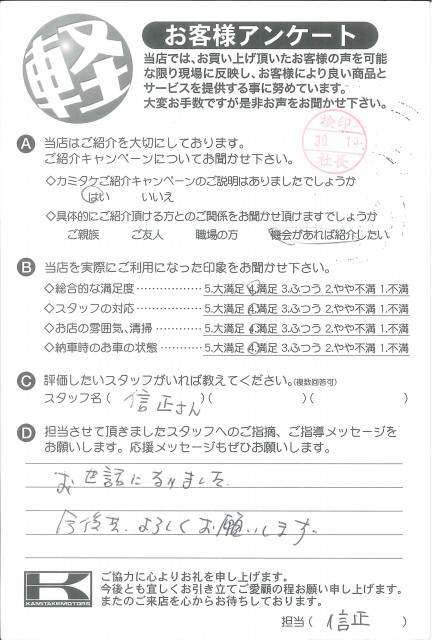 軽
お客様アンケート
当店では、お買い上げ頂いたお客様の声を可能
な限り現場に反映し、お客様により良い商品と
サービスを提供する事に努めています。
大変お手数ですが是非お声をお聞かせ下さい。
検印
30.
社長
A 当店はご紹介を大切にしております。
ご紹介キャンペーンについてお聞かせ下さい。
◇カミタケご紹介キャンペーンのご説明はありましたでしょうか
はい いいえ
◇具体的にご紹介頂ける方とのご関係をお聞かせ頂けますでしょうか
ご親族 ご友人 職場の方 機会があれば紹介したい
B 当店を実際にご利用になった印象をお聞かせ下さい。
◇総合的な満足度 ………… 5.大満足 4.満足 3.ふつう 2.やや不満 1.不満
◇スタッフの対応 ………… 5.大満足 4.満足 3.ふつう 2.やや不満 1.不満
◇お店の雰囲気、清掃 ………… 5.大満足 4.満足 3.ふつう 2.やや不満 1.不満
◇納車時のお車の状態 ………… 5.大満足 4.満足 3.ふつう 2.やや不満 1.不満
C 評価したいスタッフがいれば教えてください。(複数回答可)
スタッフ名 ( 信正さん )( )( )
D 担当させて頂きましたスタッフへのご指摘、ご指導メッセージを
お願いします。応援メッセージもぜひお願いします。
お世話になりました。
今後共、よろしくお願いします。
K
KAMITAKE MOTORS
ご協力に心よりお礼を申し上げます。
今後とも宜しくお引き立てご愛顧の程お願い申し上げます。
またのご来店を心からお待ちしております。
担当 ( 信正 )